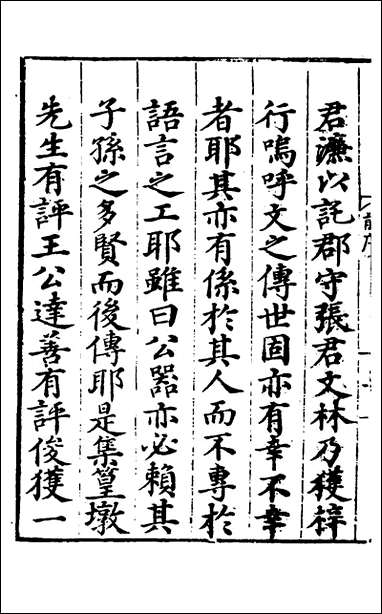 君濂以託郡守張君文林乃獲梓
行嗚呼文之傳世固亦有幸不幸
者耶其亦有係於其人而不專於
語言之工耶雖曰公器亦必賴其
子孫之多賢而後傳耶是集篁墩
先生有評王公達善有評俊獲一